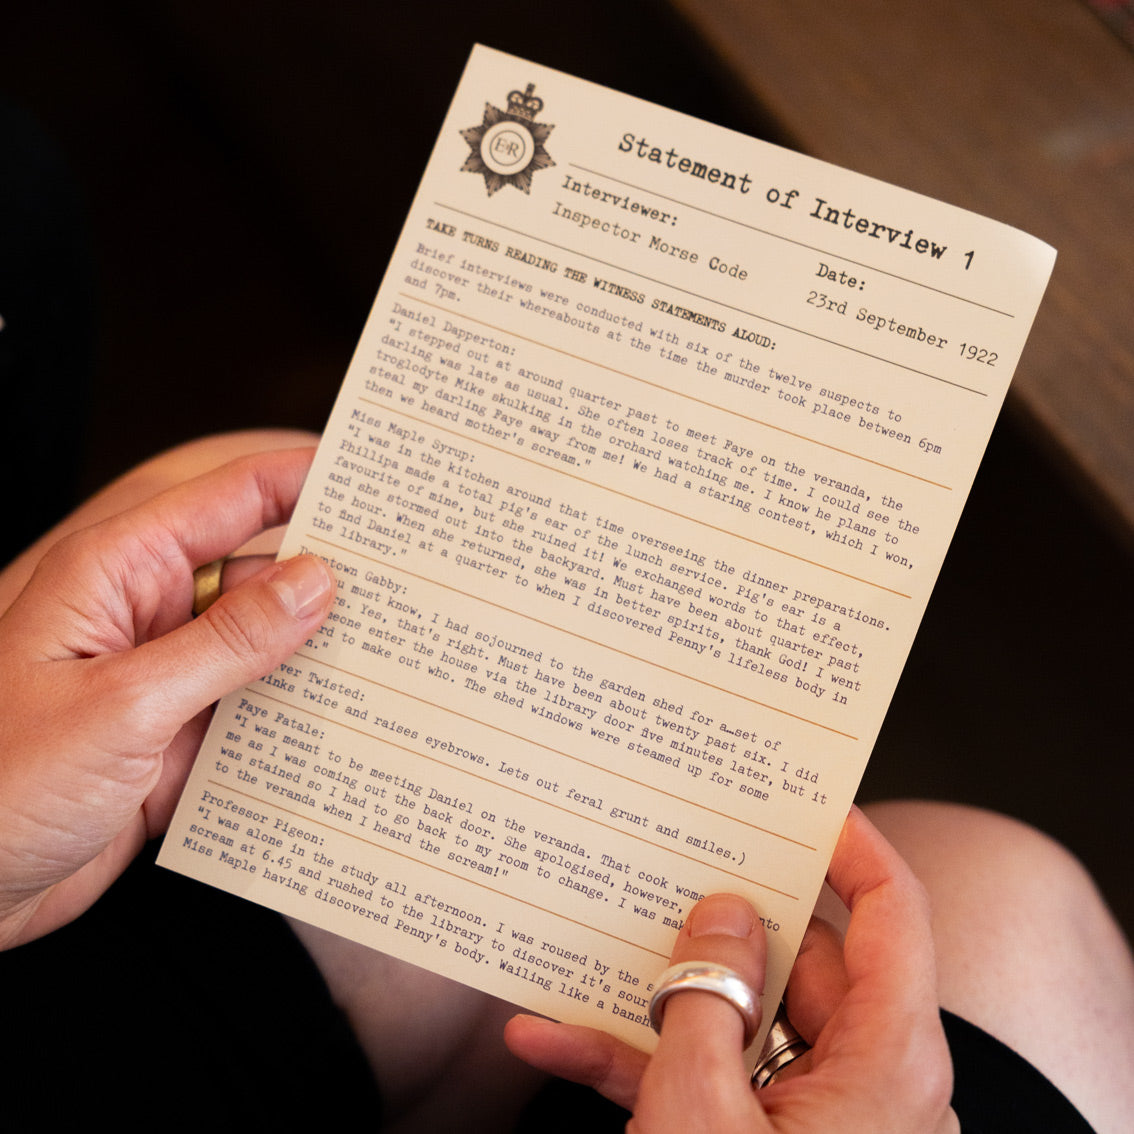 E R
Statement of Interview 1
Interviewer:
Inspector Morse Code
Date:
23rd September 1922
TAKE TURNS READING THE WITNESS STATEMENTS ALOUD:
Brief interviews were conducted with six of the twelve suspects to
discover their whereabouts at the time the murder took place between 6pm
and 7pm.
Daniel Dapperton:
"I stepped out at around quarter past to meet Faye on the veranda, the
darling was late as usual. She often loses track of time. I could see the
troglodyte Mike skulking in the orchard watching me. I know he plans to
steal my darling Faye away from me! We had a staring contest, which I won,
then we heard mother's scream."
Miss Maple Syrup:
"I was in the kitchen around that time overseeing the dinner preparations.
Phillipa made a total pig's ear of the lunch service. Pig's ear is a
favourite of mine, but she ruined it! We exchanged words to that effect,
and she stormed out into the backyard. Must have been about quarter past
the hour. When she returned, she was in better spirits, thank God! I went
to find Daniel at a quarter to when I discovered Penny's lifeless body in
the library."
Gabby:
must know, I had sojourned to the garden shed for a……set of
Yes, that's right. Must have been about twenty past six. I did
enter the house via the library door five minutes later, but it
to make out who. The shed windows were steamed up for some
Twisted:
twice and raises eyebrows. Lets out feral grunt and smiles.)
Faye Fatale:
"I was meant to be meeting Daniel on the veranda. That cook
me as I was coming out the back door. She apologised, however,
was stained so I had to go back to my room to change. I was
to the veranda when I heard the scream!"
Professor Pigeon:
"I was alone in the study all afternoon. I was roused by the
scream at 6.45 and rushed to the library to discover it's
Miss Maple having discovered Penny's body. Wailing like a